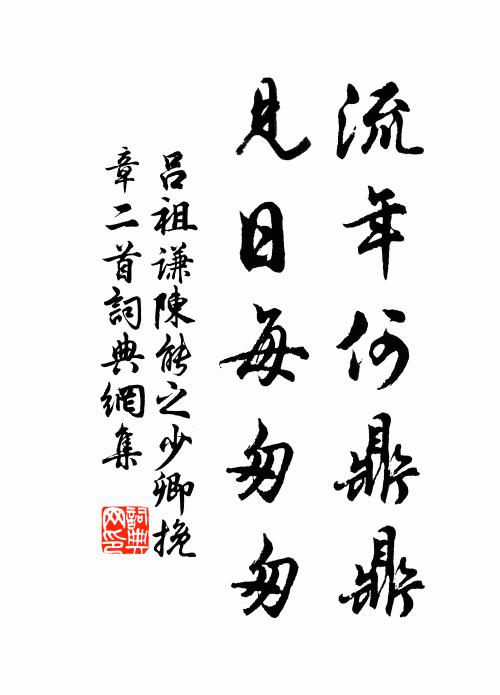 流年何鼎鼎
見日每匆匆
呂祖謙陳能之少卿挽
章二首詞典網集
詞典
网印